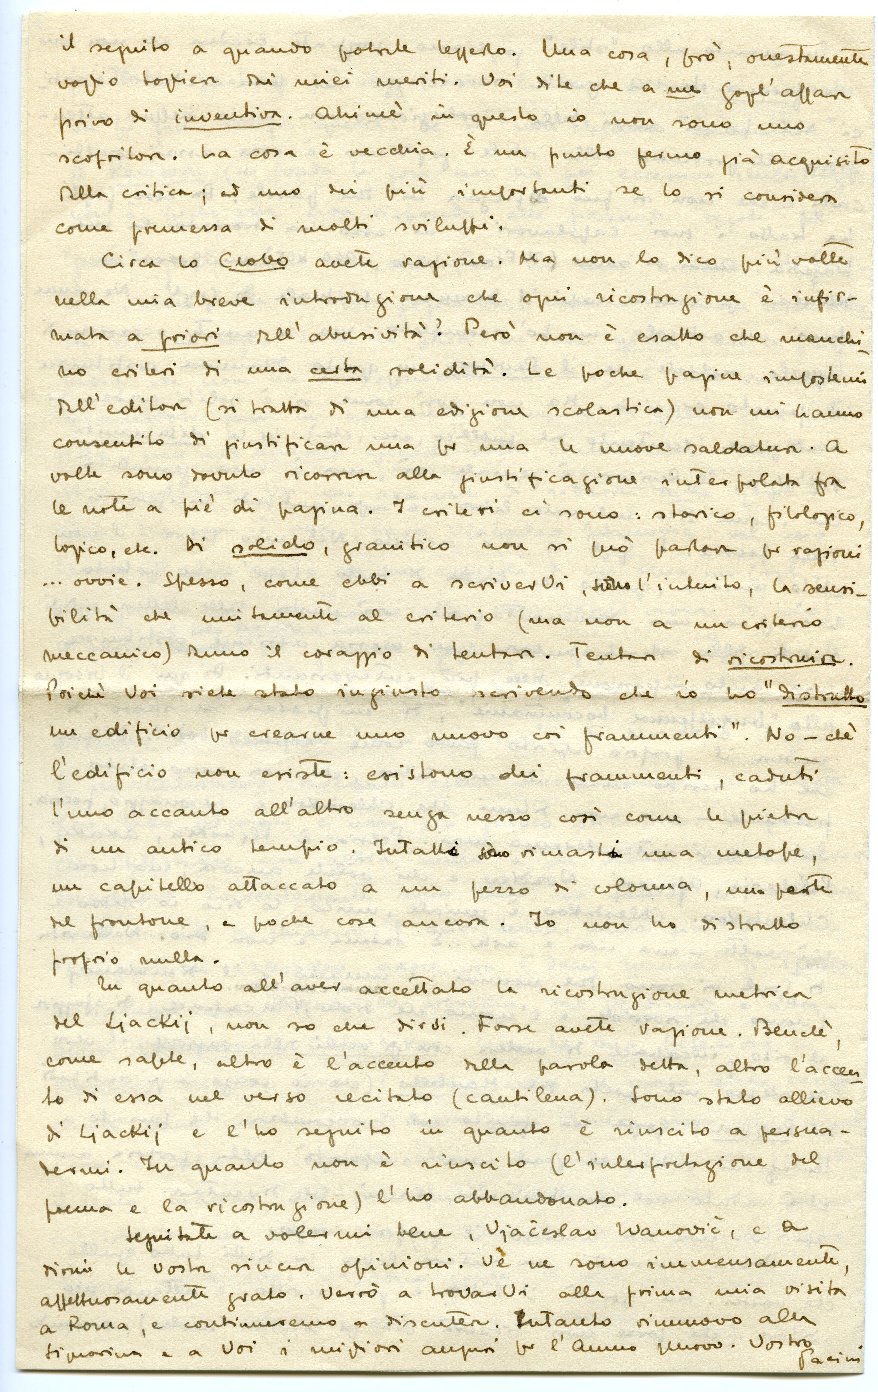 il seguito a quando potrete leggerlo. Una cosa, però, onestamente
voglio togliere dai miei meriti. Voi dite che a me Gogl' appare
privo di inventiva. Ahimè in questo io non sono uno
scopritore. La cosa è vecchia. È un punto fermo già acquisito
dalla critica; ed uno dei più importanti se lo si considera
come premessa di molti sviluppi.
Circa lo Slovo avete ragione. Ma non lo dico più volte
nella mia breve introduzione che ogni ricostruzione è infir-
mata a priori dall'abusività? Però non è esatto che manchi-
no criteri di una certa solidità. Le poche pagine impostemi
dall'editore (si tratta di una edizione scolastica) non mi hanno
consentito di giustificare una per una le nuove saldature. A
volte sono dovuto ricorrere alla giustificazione interpolata fra
le note a piè di pagina. I criteri ci sono: storico, filologico,
logico, etc. Di solido, granitico non si può parlare per ragioni
... ovvie. Spesso, come ebbi a scriverVi, sono l'intuito, la sensi-
bilità che unitamente al criterio (ma non a un criterio
meccanico) danno il coraggio di tentare. Tentare di ricostruire.
Poichè Voi siete stato ingiusto scrivendo che io ho "distrutto
un edificio per crearne uno nuovo coi frammenti". No – chè
l'edificio non esiste: esistono dei frammenti, caduti
l'uno accanto all'altro senza nesso così come le pietre
di un antico tempio. Intatti sono rimasti una metope,
un capitello attaccato a un pezzo di colonna, una parte
del frontone, e poche cose ancora. Io non ho distrutto
proprio nulla.
In quanto all'aver accettato la ricostruzione metrica
del Ljackij, non so che dirvi. Forse avete ragione. Benchè,
come sapete, altro è l'accento della parola detta, altro l'accen-
to di essa nel verso recitato (cantilena). Sono stato allievo
di Ljackij e l'ho seguito in quanto è riuscito a persua-
dermi. In quanto non è riuscito (l'interpretazione del
poema e la ricostruzione) l'ho abbandonato.
Seguitate a volermi bene, Vjačeslav Ivanovič, e a
dirmi le Vostre sincere opinioni. Ve ne sono immensamente,
affettuosamente grato. Verrò a trovarVi alla prima mia visita
a Roma, e continueremo a discutere. Intanto rinnovo alla
Signorina e a Voi i migliori auguri per l'Anno Nuovo. Vostro
Pacini